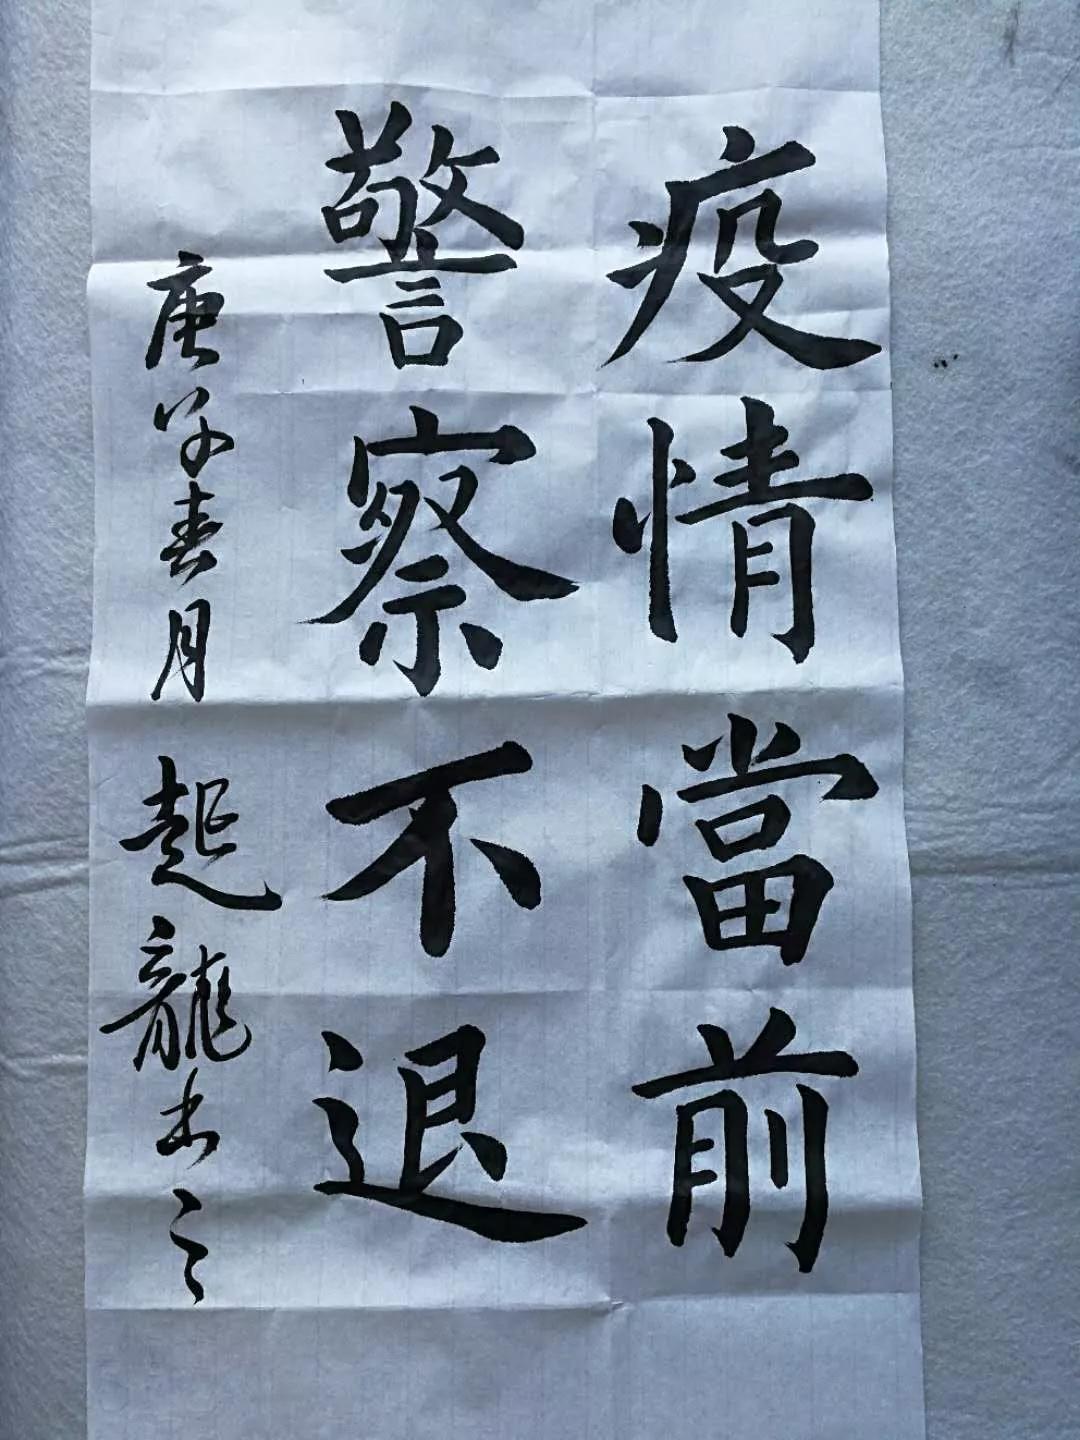 疫情當前
警察不退
庚子春月 起龍书之